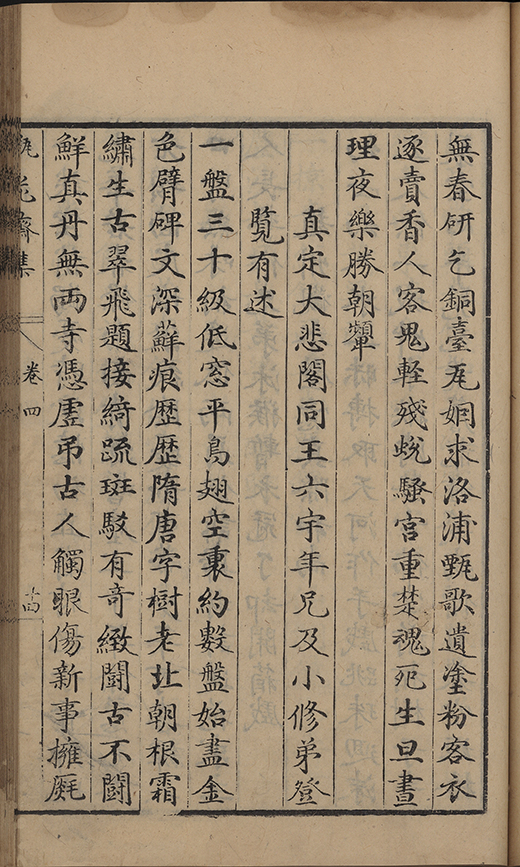 無春研乞銅臺瓦姻求洛浦甄歌遺塗粉客衣
逐賣香人客鬼輕殘蛻騷宮重楚魂死生旦晝
理夜樂勝朝顰
真定大悲閣同王六宇年兄及小修弟登
覽有述
一盤三十級低窓平鳥翅空裏約數盤始盡金
色臂碑文深蘚痕歴歴隋唐字樹老北朝根霜
繡生古翠飛題接綺疏斑駁有奇緻闘古不闘
鮮真丹無両寺憑虛弔古人觸眼傷新事擁厩
瓶花齋集
卷四
廿四